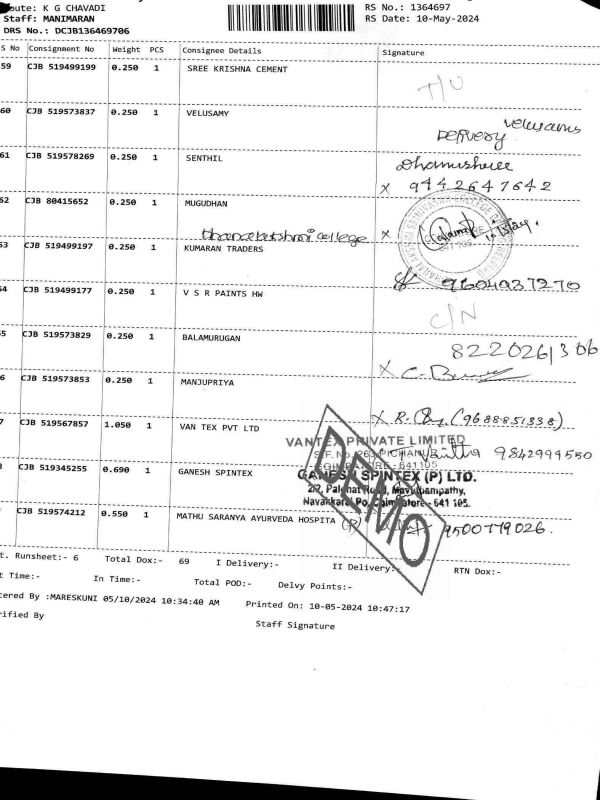 oute: K G CHAVADI
RS No.: 1364697
Staff: MANIMARAN
RS Date: 10-May-2024
DRS No.: DCJB136469706
S No Consignment No Weight PCS Consignee Details Signature
59 CJB 519499199 0.250 1 SREE KRISHNA CEMENT
T/U
60 CJB 519573837 0.250 1 VELUSAMY
velusams
61 CJB 519578269 0.250 1 SENTHIL
Dhanushree
X 9442647642
62 CJB 80415652 0.250 1 MUGUDHAN
college X
53 CJB 519499197 0.250 1 KUMARAN TRADERS
9604937270
54 CJB 519499177 0.250 1 V S R PAINTS HW
C/N
55 CJB 519573829 0.250 1 BALAMURUGAN
8220261306
X C.
6 CJB 519573853 0.250 1 MANJUPRIYA
X R. (9688851338)
7 CJB 519567857 1.050 1 VAN TEX PVT LTD
VANTEX PRIVATE LIMITED
S.F. No. 263, PICHANUR
9842999550
COIMBATORE - 641105
CJB 519345255 0.690 1 GANESH SPINTEX
GANESH SPINTEX (P) LTD.
2/2, Palghat Road, Mavuthampathy,
Navakkarai Po, Coimbatore - 641 105.
CJB 519574212 0.550 1 MATHU SARANYA AYURVEDA HOSPITA (P)
9500779026
DEMO
t. Runsheet:- 6 Total Dox:- 69 I Delivery:- II Delivery:- RTN Dox:-
t Time:- In Time:- Total POD:- Delvy Points:-
tered By :MARESKUNI 05/10/2024 10:34:40 AM Printed On: 10-05-2024 10:47:17
rified By Staff Signature